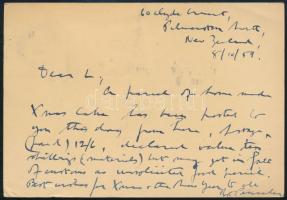 Palmerston North,
New Zealand,
8/10/59.
Dear L;
A parcel of home made
Xmas Cake has been posted to
you this day from here, postage
(paid) 12/6, declared value ten
shillings (materials) but may get in free
of customs as unsolicited food parcel.
Best wishes for Xmas & the New Year to all